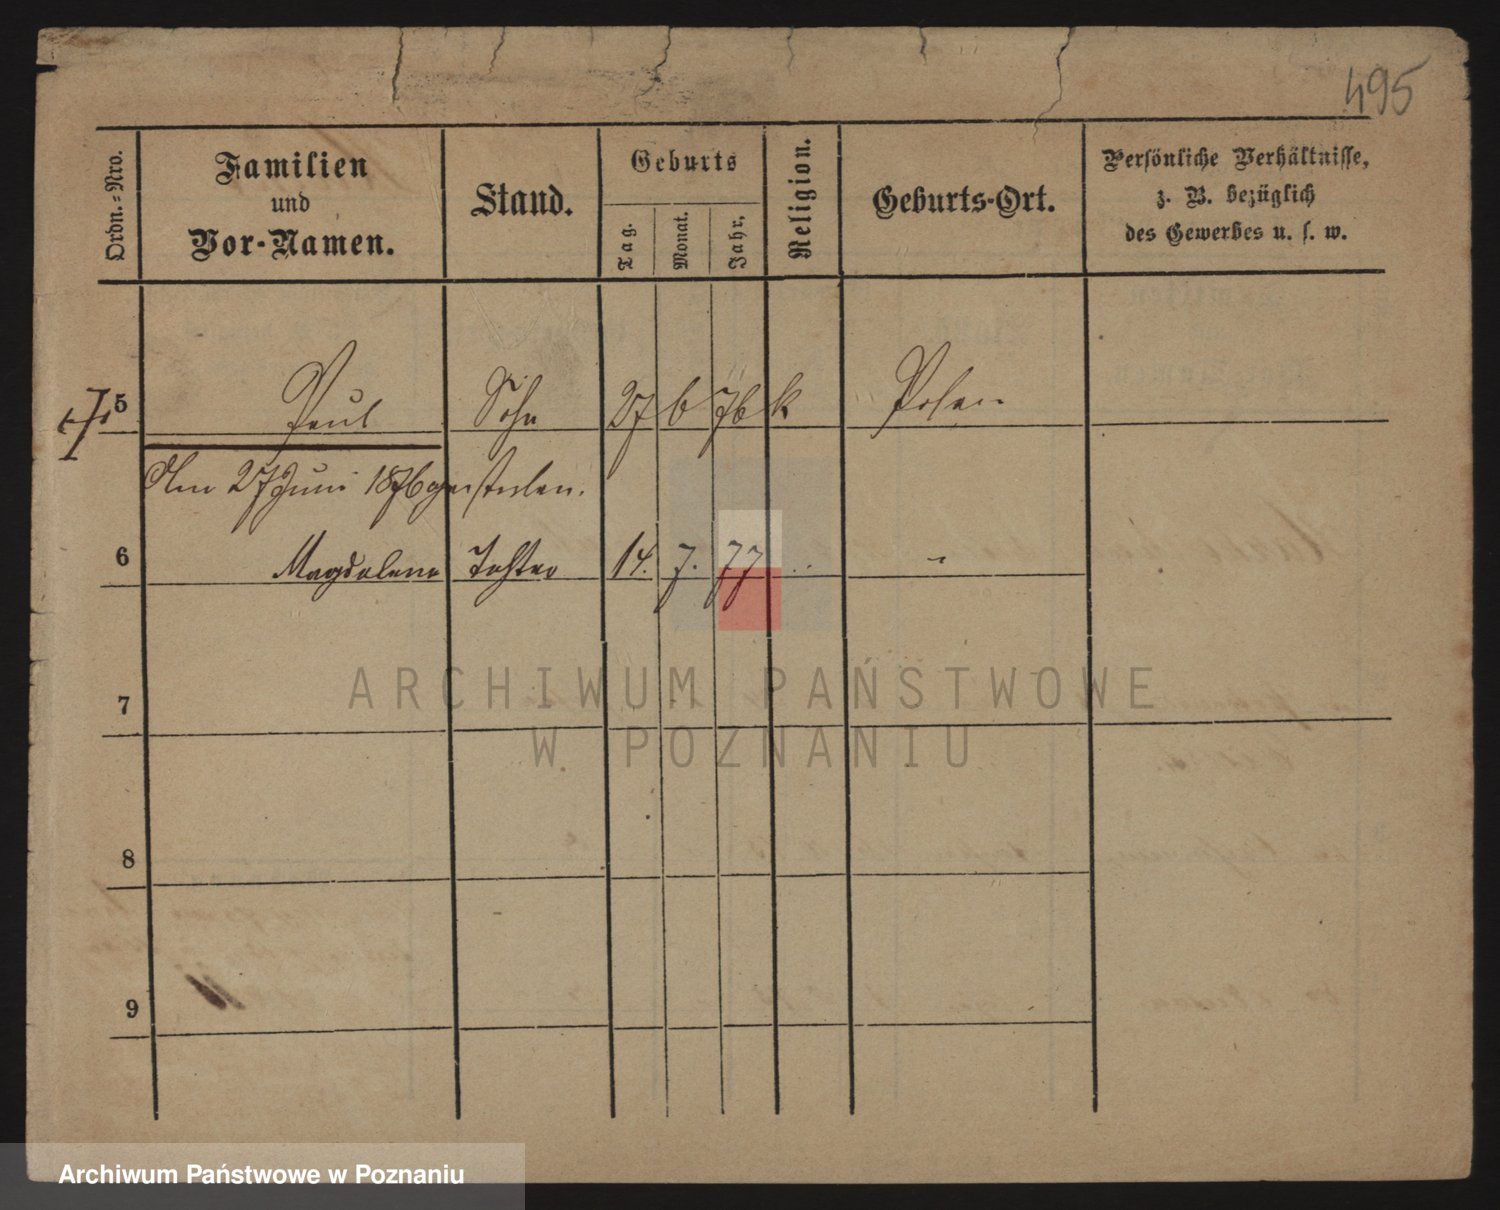 495
Ordn.-Nro.
Familien
und
Vor-Namen.
Stand.
Geburts
Tag.
Monat.
Jahr.
Religion.
Geburts-Ort.
Persönliche Verhältnisse,
z. B. bezüglich
des Gewerbes u. s. w.
5 Paul Sohn 27 6 76 k Posen
Am 27 Juni 1876 gestorben.
6 Magdalena Tochter 14. 7. 77 "
7
ARCHIWUM PAŃSTWOWE
W POZNANIU
8
9
Archiwum Państwowe w Poznaniu